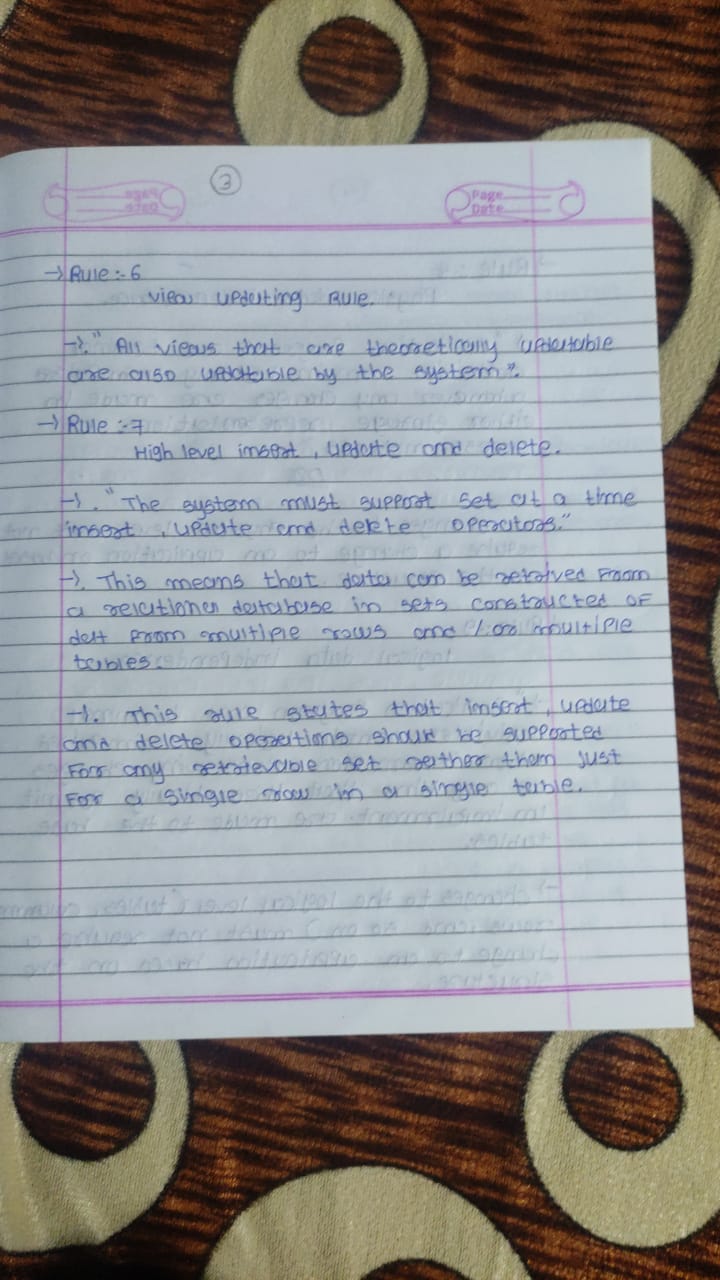 3
Page
Date
→ Rule :- 6
View updating Rule.
→. " All views that are theoretically updatable
are also updatable by the system ".
→ Rule :- 7
High level insert , update and delete.
→. " The system must support set at a time
insert , update and delete operators."
→. This means that data can be
from
a relational database in sets constructed of
from multiple rows and / or multiple
tables.
→. This rule states that insert , update
and delete operations should be supported
For any retrievable set rather than just
For a single row in a single table.